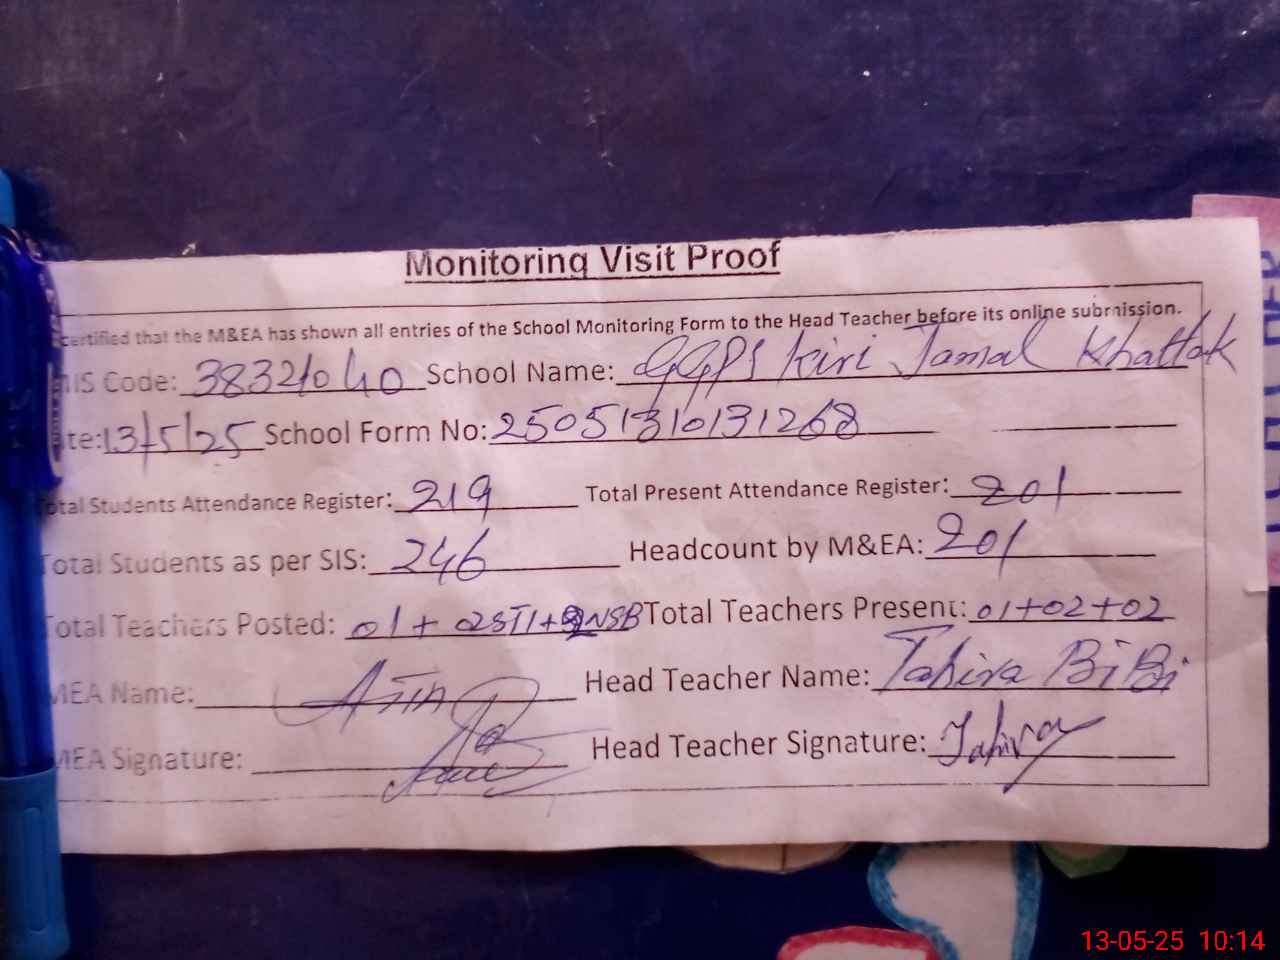 Monitoring Visit Proof
certified that the M&EA has shown all entries of the School Monitoring Form to the Head Teacher before its online submission.
IS Code: 38321040 School Name: GGPS Kiri Jamal Khattak
te: 13/5/25 School Form No: 25051310131268
otal Students Attendance Register: 219 Total Present Attendance Register: 201
Total Students as per SIS: 246 Headcount by M&EA: 201
Total Teachers Posted: 01+02STI+ NSB Total Teachers Present: 01+02+02
MEA Name: Head Teacher Name: Tahira BiBi
MEA Signature: Head Teacher Signature: Tahira
13-05-25 10:14